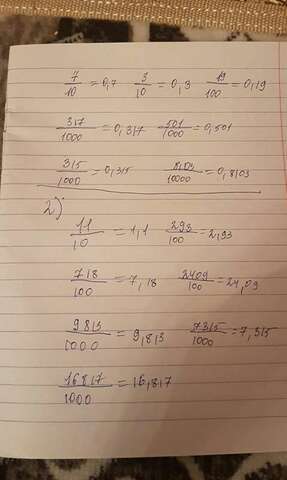 7/10 = 0,7 3/10 = 0,3 19/100 = 0,19
317/1000 = 0,317 501/1000 = 0,501
315/1000 = 0,315 8103/10000 = 0,8103
2)
11/10 = 1,1 293/100 = 2,93
718/100 = 7,18 2409/100 = 24,09
9813/1000 = 9,813 7315/1000 = 7,315
16817/1000 = 16,817